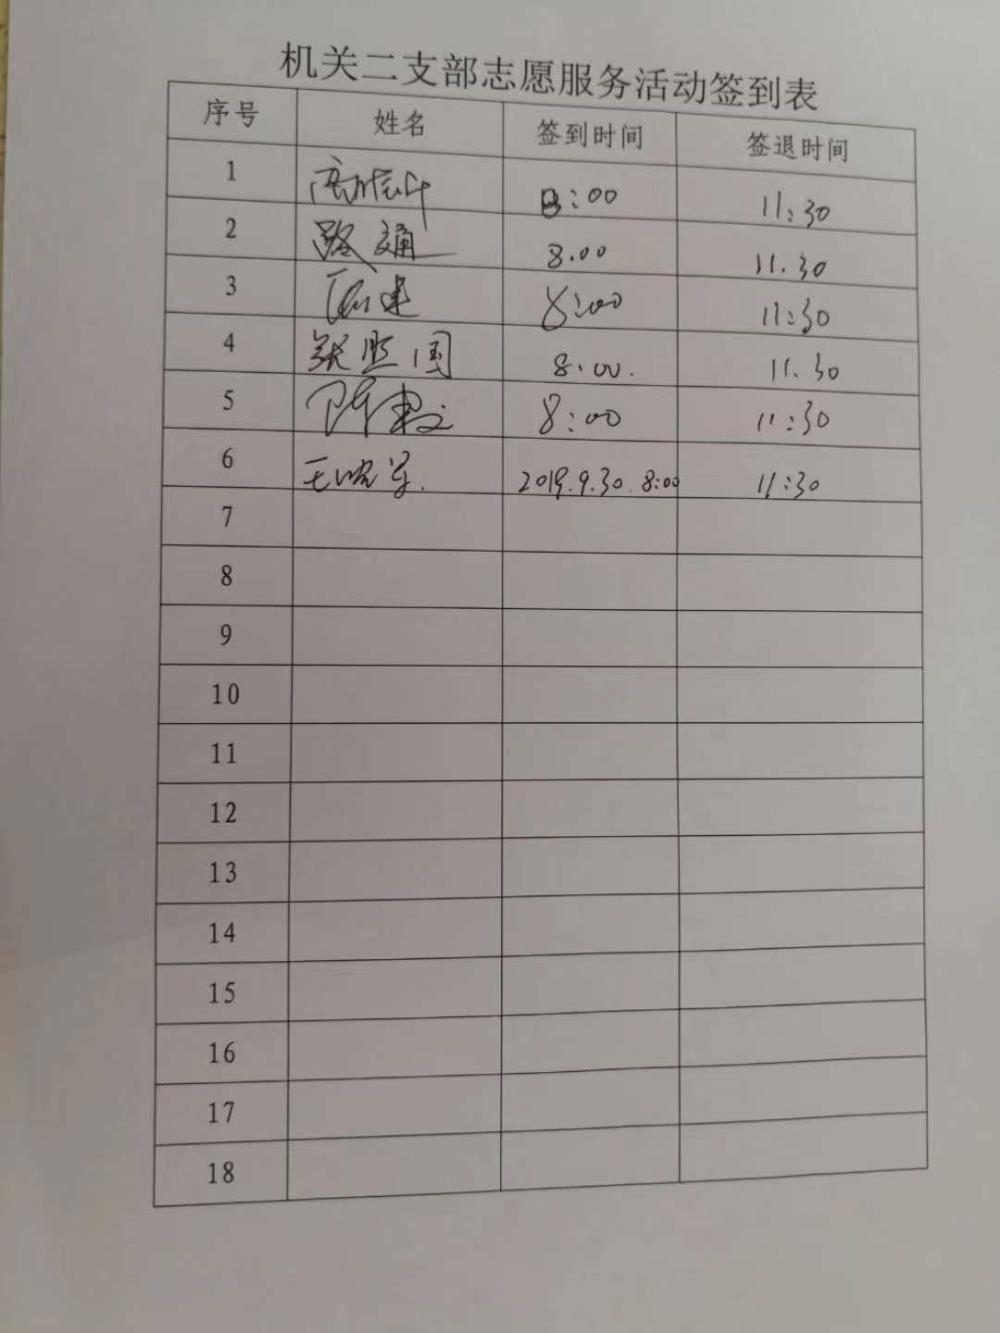 机关二支部志愿服务活动签到表
序号 姓名 签到时间 签退时间
1 8:00 11:30
2 路通 8.00 11.30
3 8:00 11:30
4 张照国 8.00. 11.30
5 8:00 11:30
6 王晓军. 2019.9.30.8:00 11:30
7
8
9
10
11
12
13
14
15
16
17
18